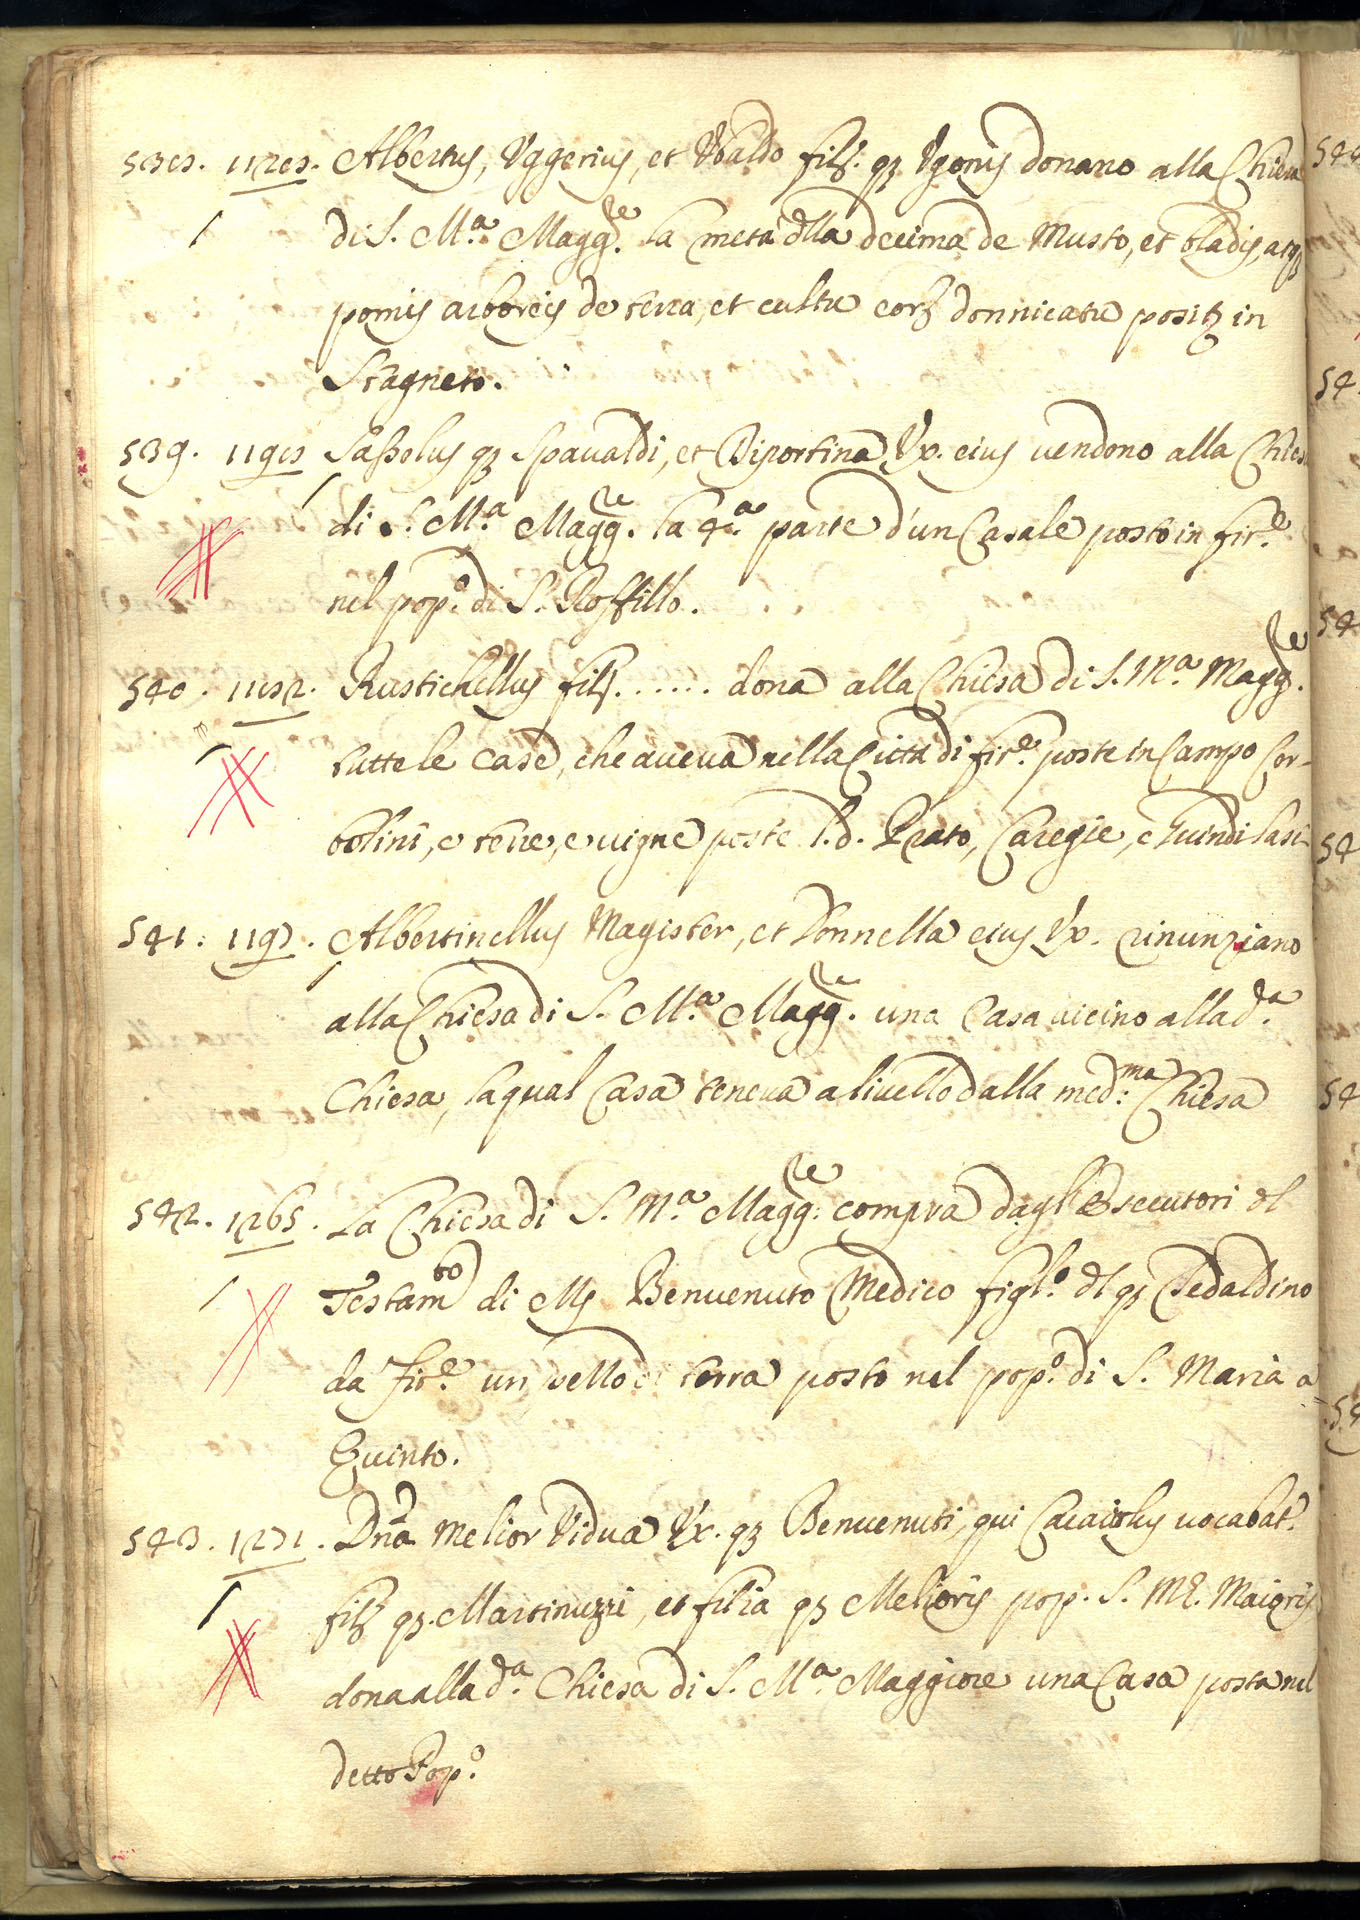 538. 1128. Albertus, Uggerius, et Ubaldo filȷ. qʒ Ugonis donano alla Chiesa
di S. M.ª Magg.re la metà dlla decima de Musto, et bladis, atqʒ
pomis arboreis de terra, et cultu corʒ donnicatu positʒ in
Stagneto.
539. 1198 Sassolus qʒ Spavaldi, et Diportina Ux. eius vendono alla Chiesa
di S. M.ª Magg.re la 4.ª parte d'un Casale posto in fir.e
nel pop.º di S. Roffillo.
540. 1182. Rustichellus filȷ. . . . . . dona alla Chiesa di S. M.ª Magg.re
tutte le case, che aveva nella Città di fir.e poste in Campo Cor-
bolini, e terre, e vigne poste l. d. Prato, Caregie, e
541. 1197. Albertinellus Magister, et Donnella eius Ux. rinunziano
alla Chiesa di S. M.ª Magg.re una Casa vicino alla d.ª
Chiesa, la qual Casa teneva a livello dalla med:ma Chiesa
542. 1265. La Chiesa di S. M.ª Magg:re compra dagl'Esecutori dl
Testam.to di Ms Benvenuto Medico figl.º dl qʒ Tedaldino
da fir.e un pezzo di terra posto nel pop.º di S. Maria a
Quinto.
543. 1271. Dna Melior Vidua Ux. qʒ Benvenuti, qui vocabat.
filȷ qʒ. Martinuzzi, et filia qʒ Melioris pop. S. ME. Maioris
dona alla d.ª Chiesa di S. M.ª Maggiore una Casa posta nel
detto Pop.º